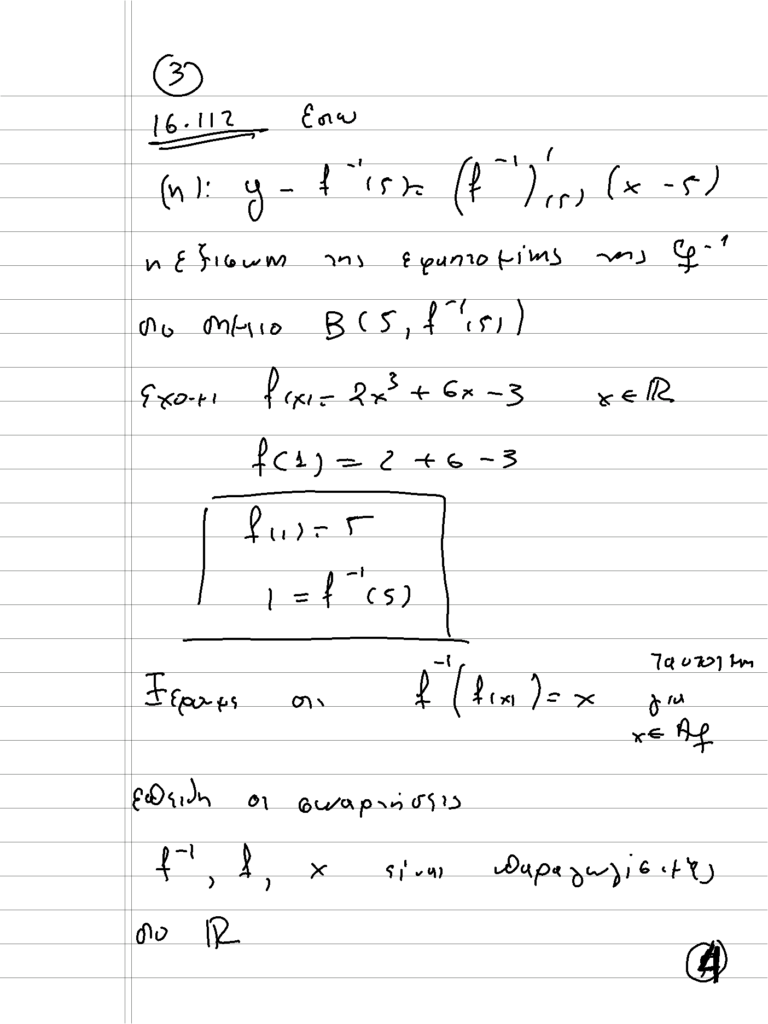 ③
16.112 Εστω
(η): y - f⁻¹(5) = (f⁻¹)'(5) (x - 5)
η εξισωση της εφαπτομένης της C_f⁻¹
στο σημείο B(5, f⁻¹(5))
έχουμε f(x) = 2x³ + 6x - 3 x ∈ ℝ
f(1) = 2 + 6 - 3
f(1) = 5
1 = f⁻¹(5)
Ξέρουμε οτι f⁻¹(f(x)) = x ταυτότητα
για
x ∈ A_f
επειδη οι συναρτήσεις
f⁻¹, f, x είναι παραγωγίσιμες
στο ℝ
④